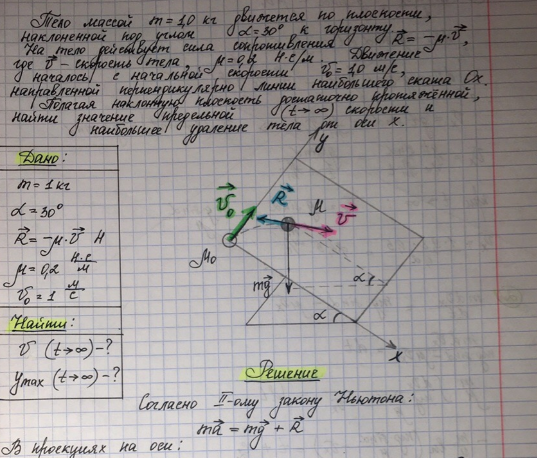 Тело массой m = 1,0 кг движется по плоскости,
наклоненной под углом α = 30° к горизонту.
На тело действует сила сопротивления R⃗ = -μ·v⃗,
где v⃗ - скорость тела, μ = 0,2 Н·с/м. Движение
началось с начальной скорости v₀ = 1,0 м/с,
направленной перпендикулярно линии наибольшего ската Ox.
Полагая наклонную плоскость достаточно протяжённой,
найти значение предельной (t→∞) скорости и
наибольшее удаление тела от оси x.
Дано:
m = 1 кг
α = 30°
R⃗ = -μ·v⃗ Н
μ = 0,2 Н·с/м
v₀ = 1 м/с
Найти:
v (t→∞) - ?
ymax (t→∞) - ?
y
v⃗₀
R⃗
M
v⃗
M₀
mg⃗
α
α
x
Решение
Согласно II-ому закону Ньютона:
ma⃗ = mg⃗ + R⃗
В проекциях на оси: